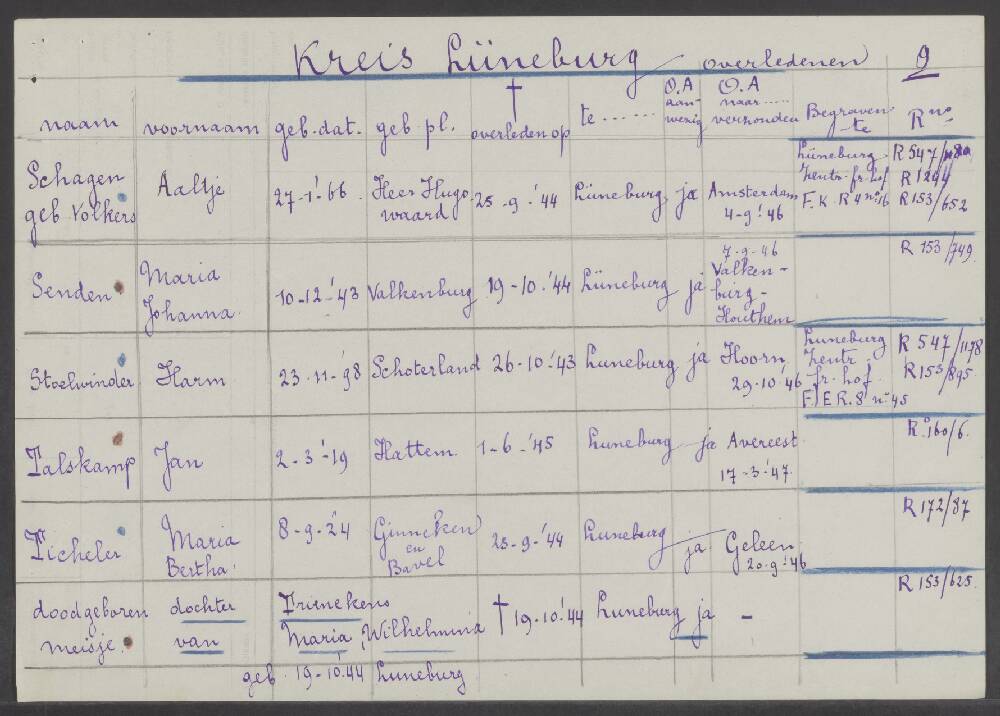 Kreis Lüneburg overledenen 9
naam voornaam geb. dat. geb pl. † overleden op te ...... O.A aan- wezig O.A naar..... verzonden Begraven te R no
Schagen geb. Volkers Aaltje 27-1-'66. Heer Hugo waard 25-9-'44 Lüneburg ja Amsterdam 4-9-'46 Lüneburg Zentr. fr. hof F. K R 4 no 16 R 547/ R 1244 R 153/652
Senden Maria Johanna. 10-12-'43 Valkenburg 19-10-'44 Lüneburg ja 7-9-46 Valken- burg- Houthem R 153/749.
Stoelwinder Harm 23-11-'98 Schoterland 26-10-'43 Luneburg ja Hoorn. 29-10-'46 Luneburg Zentr. fr. hof. F. E R. 8 no 45 R 547/1178 R 153/895.
Talskamp Jan 2-3-'19 Hattem. 1-6-'45 Luneburg ja Avereest 17-3-'47. R. 160/6.
Ticheler Maria Bertha. 8-9-'24 Ginneken en Bavel 25-9-'44 Luneburg ja Geleen. 20-9-'46 R 172/87
doodgeboren meisje. dochter van Trienekens Maria Wilhelmina † 19-10-'44 Luneburg ja - R 153/625.
geb. 19-10-'44 Luneburg